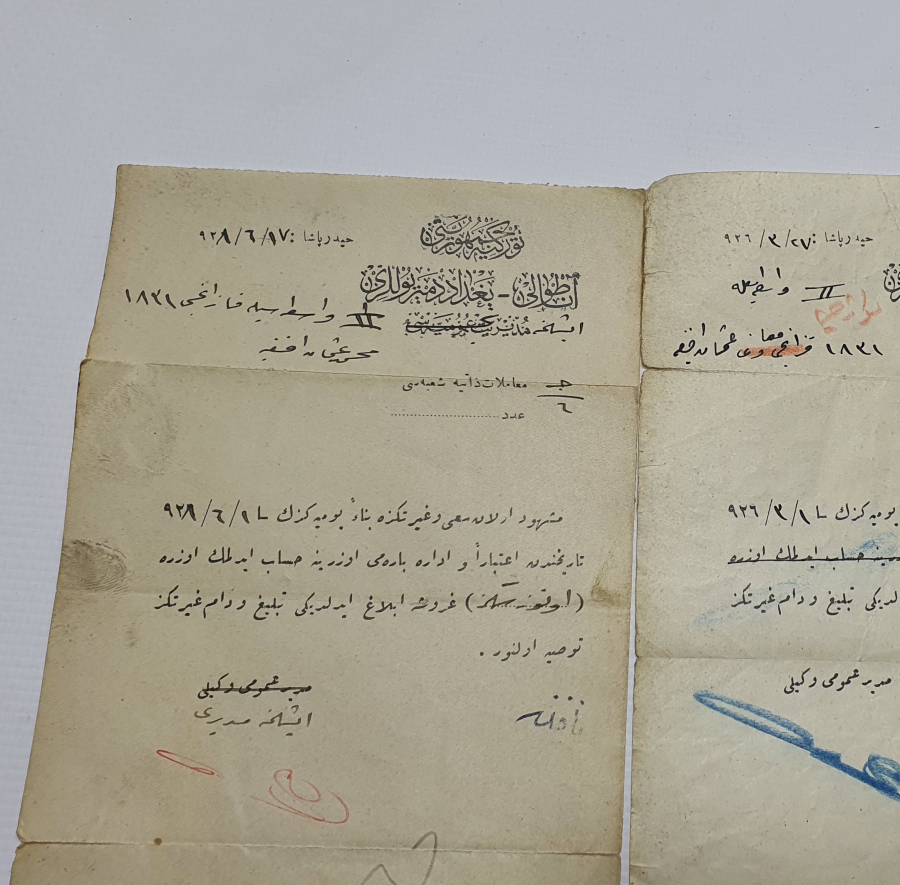 تورکیه جمهوریتی
حیدرپاشا : ٩٢٨/٦/١٧
آناطولی - بغداد دمیریوللری
ایشلتمه مدیریت عمومیه‌سی
II واسطه‌سیله ١٨٣١
افندی‌یه
معاملات ذاتیه شعبه‌سی
ج
٦
عدد
مشهود اولان سعی و غیرتکزه بناءً یومیه‌کزك ٩٢٨/٦/١
تاریخندن اعتباراً و اداره پاره‌سی اوزرینه حساب ایدلمك اوزره
(اوتوز سکز) غروشه ابلاغ ایدلدیکی تبلیغ و دوام غیرتکز
توصیه اولنور .
مدیر عمومی وکیلی
ایشلتمه مدیری
نافعه
حیدرپاشا : ٩٢٦/٣/٢٧
II واسطه‌سیله
١٨٣١ عثمان افندی‌یه
یومیه‌کزك ٩٢٦/٣/١
حساب ایدلمك اوزره
تبلیغ و دوام غیرتکز
مدیر عمومی وکیلی